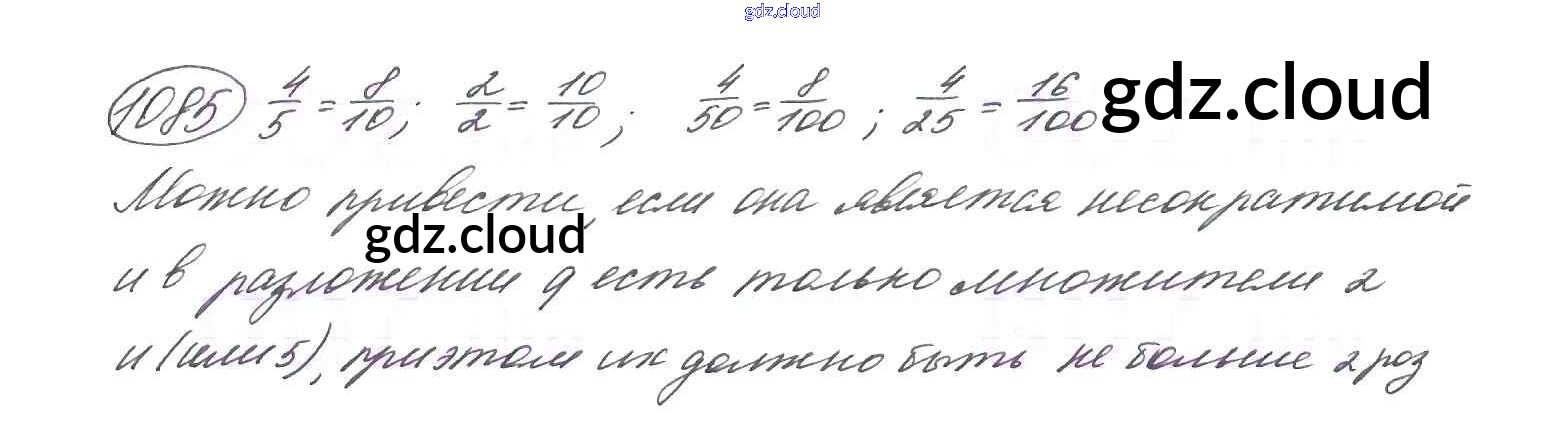 gdz.cloud
1085 4/5 = 8/10; 2/2 = 10/10; 4/50 = 8/100; 4/25 = 16/100 gdz.cloud
Можно привести, если она является несократимой
gdz.cloud
и в разложении q есть только множители 2
и (или 5), при этом их должно быть не больше 2 раз